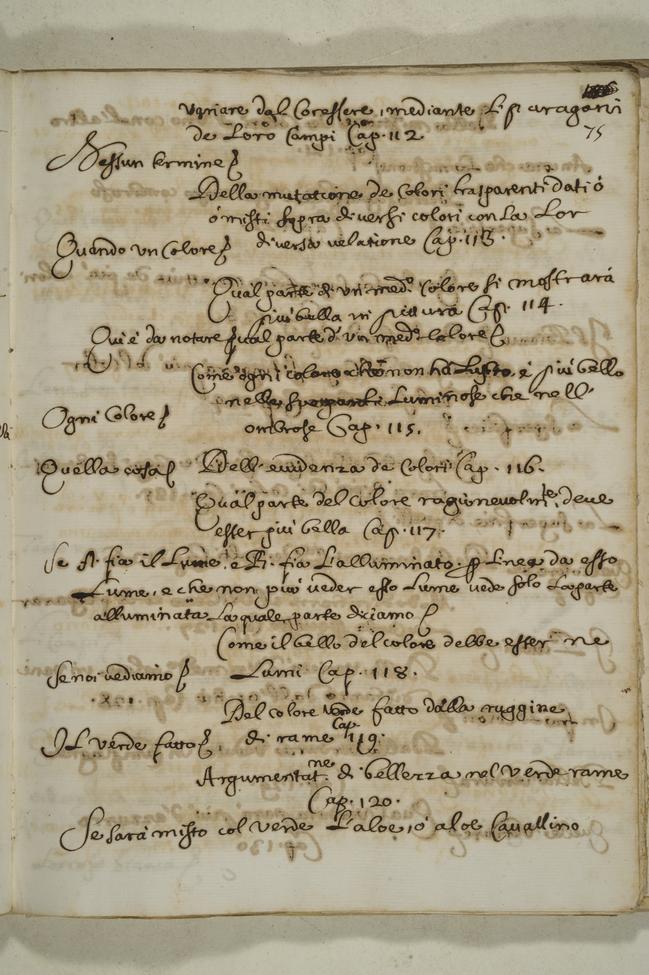 75
variare dal Coressere, mediante Li paragoni
de Loro Campi Cap. 112
Nessun termine
Della mutatione de Colori trasparenti dati ò
ò misti sopra diversi colori con La Lor
Quando un Colore
diversa velatione Cap. 113.
Qual parte di un med.º Colore si mostrarà
più bella in pittura Cap. 114.
Qui è da notare qual parte d'un med.º Colore
Come ogni colore che non ha Lustro è più bello
nelle Luminose che nell'
Ogni Colore
ombrose Cap. 115.
Quella cosa
Dell'evidenza de Colori Cap. 116.
Qual parte del colore ragionevolm.te deve
esser più bella Cap. 117.
Se A. fia il Lume, e B. fia L'alluminato. p Linea da esso
Lume, e che non può veder esso Lume vede solo La parte
alluminata La quale parte diciamo
Come il bello del colore debbe esser ne
Se noi vediamo
Lumi Cap. 118.
Del colore verde fatto dalla ruggine
Il verde fatto
di rame Cap. 119.
Argumentat.ne di bellezza nel Verde rame
Cap. 120.
Se sarà misto col Verde L'aloe, ò aloe Cavallino